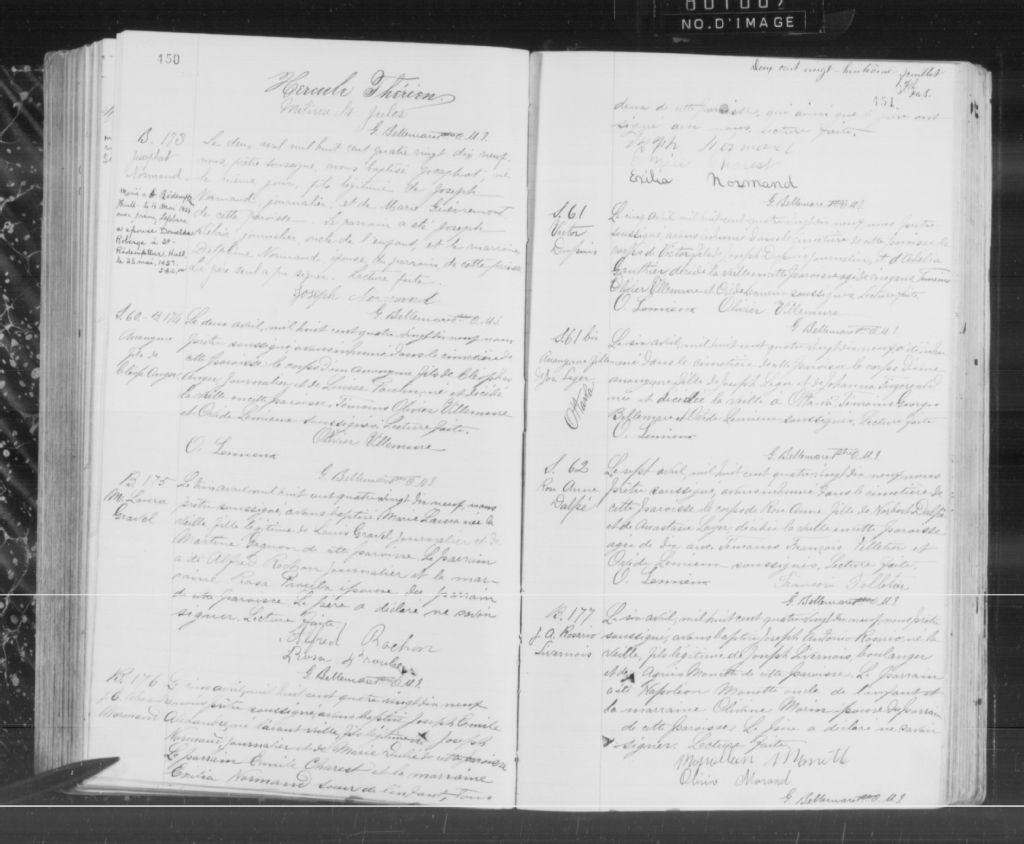 801007
NO. D'IMAGE
450
Hercule Thérien
Mélina St Jules
G. Bellemare ptre O.M.I.
B. 173
Josaphat
Normand
Le deux avril mil huit cent quatre vingt dix neuf,
nous, prêtre soussigné, avons baptisé Josaphat, né
le même jour, fils légitime de Joseph
Normand, journalier, et de Marie
de cette paroisse. Le parrain a été Joseph
journalier, oncle de l'enfant, et la marraine
Delphine Normand, épouse du parrain, de cette paroisse
Le père seul a pu signer. Lecture faite.
Joseph Normand
G. Bellemare ptre O.M.I.
S. 60 - B. 174
Anonyme
fils de
Cléop. Auger
Le deux avril, mil huit cent quatre vingt dix neuf nous
prêtre soussigné avons inhumé dans le cimetière de
cette paroisse le corps d'un anonyme fils de Cléophas
Auger journalier et de Louise né et décédé
la veille en cette paroisse. Témoins Olivier Villemure
et Ovide Lemieux soussignés. Lecture faite.
Olivier Villemure
O. Lemieux
G. Bellemare ptre O.M.I.
B 175
M. Laura
Gravel
avril mil huit cent quatre vingt dix neuf, nous
prêtre soussigné, avons baptisé Marie Laura née la
veille fille légitime de Louis Gravel journalier et de
Martine Gagnon de cette paroisse. Le parrain
a été Alfred Rochon journalier et la mar-
raine Rosa Proulx épouse du parrain
de cette paroisse. Le père a déclaré ne savoir
signer. Lecture faite
Alfred Rochon
Rosa Proulx
G. Bellemare ptre O.M.I.
B. 176
Normand
Le cinq avril, mil huit cent quatre vingt dix neuf
nous prêtre soussigné, avons baptisé Joseph Emile
né l'avant veille, fils légitime de Joseph
Normand journalier et de Marie de cette paroisse
Le parrain Emile Charest et la marraine
Exilia Normand soeur de l'enfant, tous
deux cent vingt-huitième feuillet
451
deux de cette paroisse, qui ainsi que le père ont
signé avec nous. Lecture faite.
Joseph Normand
Emile Charest
Exilia Normand
G. Bellemare ptre O.M.I.
S. 61
Victor
Dupuis
Le cinq avril, mil huit cent quatre vingt dix neuf, nous prêtre
soussigné avons inhumé dans le cimetière de cette paroisse le
corps de Victor fils de Joseph Dupuis journalier, et d'Adélia
Gauthier, décédé la veille en cette paroisse agé de cinq ans. Témoins
Olivier Villemure et Ovide Lemieux soussignés. Lecture faite
O. Lemieux Olivier Villemure
G. Bellemare ptre O.M.I.
S. 61 bis
Anonyme fille
de Jos. Léger
Ottawa
Le six avril, mil huit cent quatre vingt dix neuf
inhumé dans le cimetière de cette paroisse le corps d'une
anonyme fille de Joseph Léger et de Johanna Fitzgerald
née et décédée la veille à Ottawa. Témoins Georges
Bellemare et Ovide Lemieux soussignés. Lecture faite
O. Lemieux
G. Bellemare ptre O.M.I.
S. 62
Rose Anna
Dalpé
Le sept avril, mil huit cent quatre vingt dix neuf nous
prêtre soussigné, avons inhumé dans le cimetière de
cette paroisse le corps de Rose Anna fille de Norbert Dalpé
et de Anastasie Léger décédée la veille en cette paroisse
agée de dix ans. Témoins François Pelletier et
Ovide Lemieux soussignés. Lecture faite.
O. Lemieux François Pelletier
G. Bellemare ptre O.M.I.
B. 177
J. A. Rosario
Livernois
Le six avril, mil huit cent quatre vingt dix neuf, nous prêtre
soussigné, avons baptisé Joseph Antonio Rosario, né la
veille, fils légitime de Joseph Livernois, boulanger
et de Agnès Monette de cette paroisse. Le parrain
a été Napoléon Monette oncle de l'enfant et
la marraine Olivine Morin épouse du parrain
de cette paroisse. Le père a déclaré ne savoir
signer. Lecture faite
Napoléon Monette
G. Bellemare ptre O.M.I.